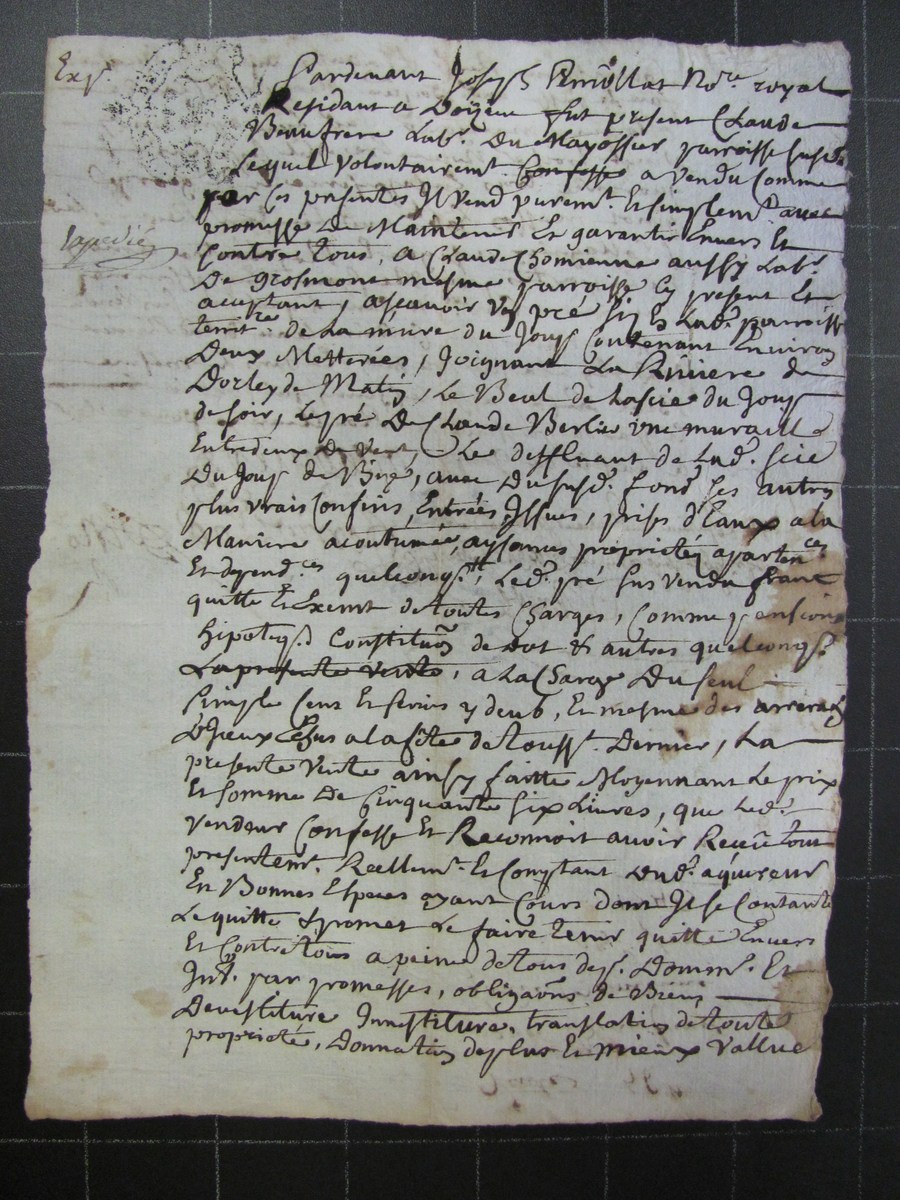 Exp.
Pardevant Joseph Royal
Residant a Doizieu fut present Claude
Beaufrere Labr. Du Mayossier parroisse susd.
Lequel volontairemt. Confesse a vendu Comme
par Ces presentes Il vend puremt. Et simplemt. avec
promesse De Maintenir Et garantir Envers Et
Expedié
Contre tous, a Claude Chomienne aussy Labr.
De grosmont mesme parroisse Cy present Et
aceptant, asçavoir Un pré sis En Lad. parroisse
territre. de La mure du Jouq Contenant Environ
Deux Metterées, Joignant La Riviere du
Dorley de Matin, Le Beal de La scie du Jouq
de soir, Le pré De Claude Berlier une muraille
Entredeux de vent, Et Le deffluant de Lad. scie
Du Jouq de Bize, avec Du susd. fond ses autres
plus vrais Confins, Entrées, Issues, prises d'Eaux a la
Maniere acoutumée, aysances proprietés aparten.ces
Et depend.ces quelconq. Led. pré sus vendu franc
quitte Et Exemt de toutes Charges, Comme pensions
hipoteq. Constituõn de dot & autres quelconq.
La presente vente, a La Charge Du seul
simple Cens Et servis y deub, Et mesme des arrerages
D'yceux Echus a la fête de Touss.t Dernier, La
presente Vente ainsy faitte Moyennant Le prix
Et somme De Cinquante six Livres, que Led.
Vendeur Confesse Et Reconnoit avoir Receu tout
presentemt. Reellemt. Et Comptant Dud. aquereur
En Bonnes Especes ayant Cours dont Il se Contante
Le quitte & promet Le faire tenir quitte Envers
Et Contre tous a peine de tous desp. Domm. Et
Int. par promesses, obligaõns de Biens
Devestiture Investiture, translation de toute
proprieté, Donnation de plus Et mieux Vallue